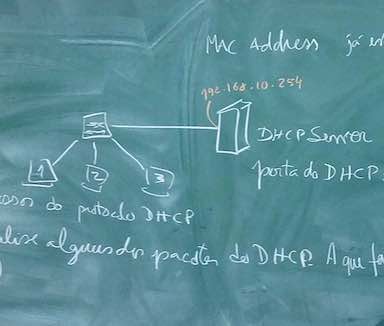 MAC Address já
192.168.10.254
DHCP Server
porta do DHCP
1 2 3
do protocolo DHCP
alguns dos pacotes do DHCP. A que